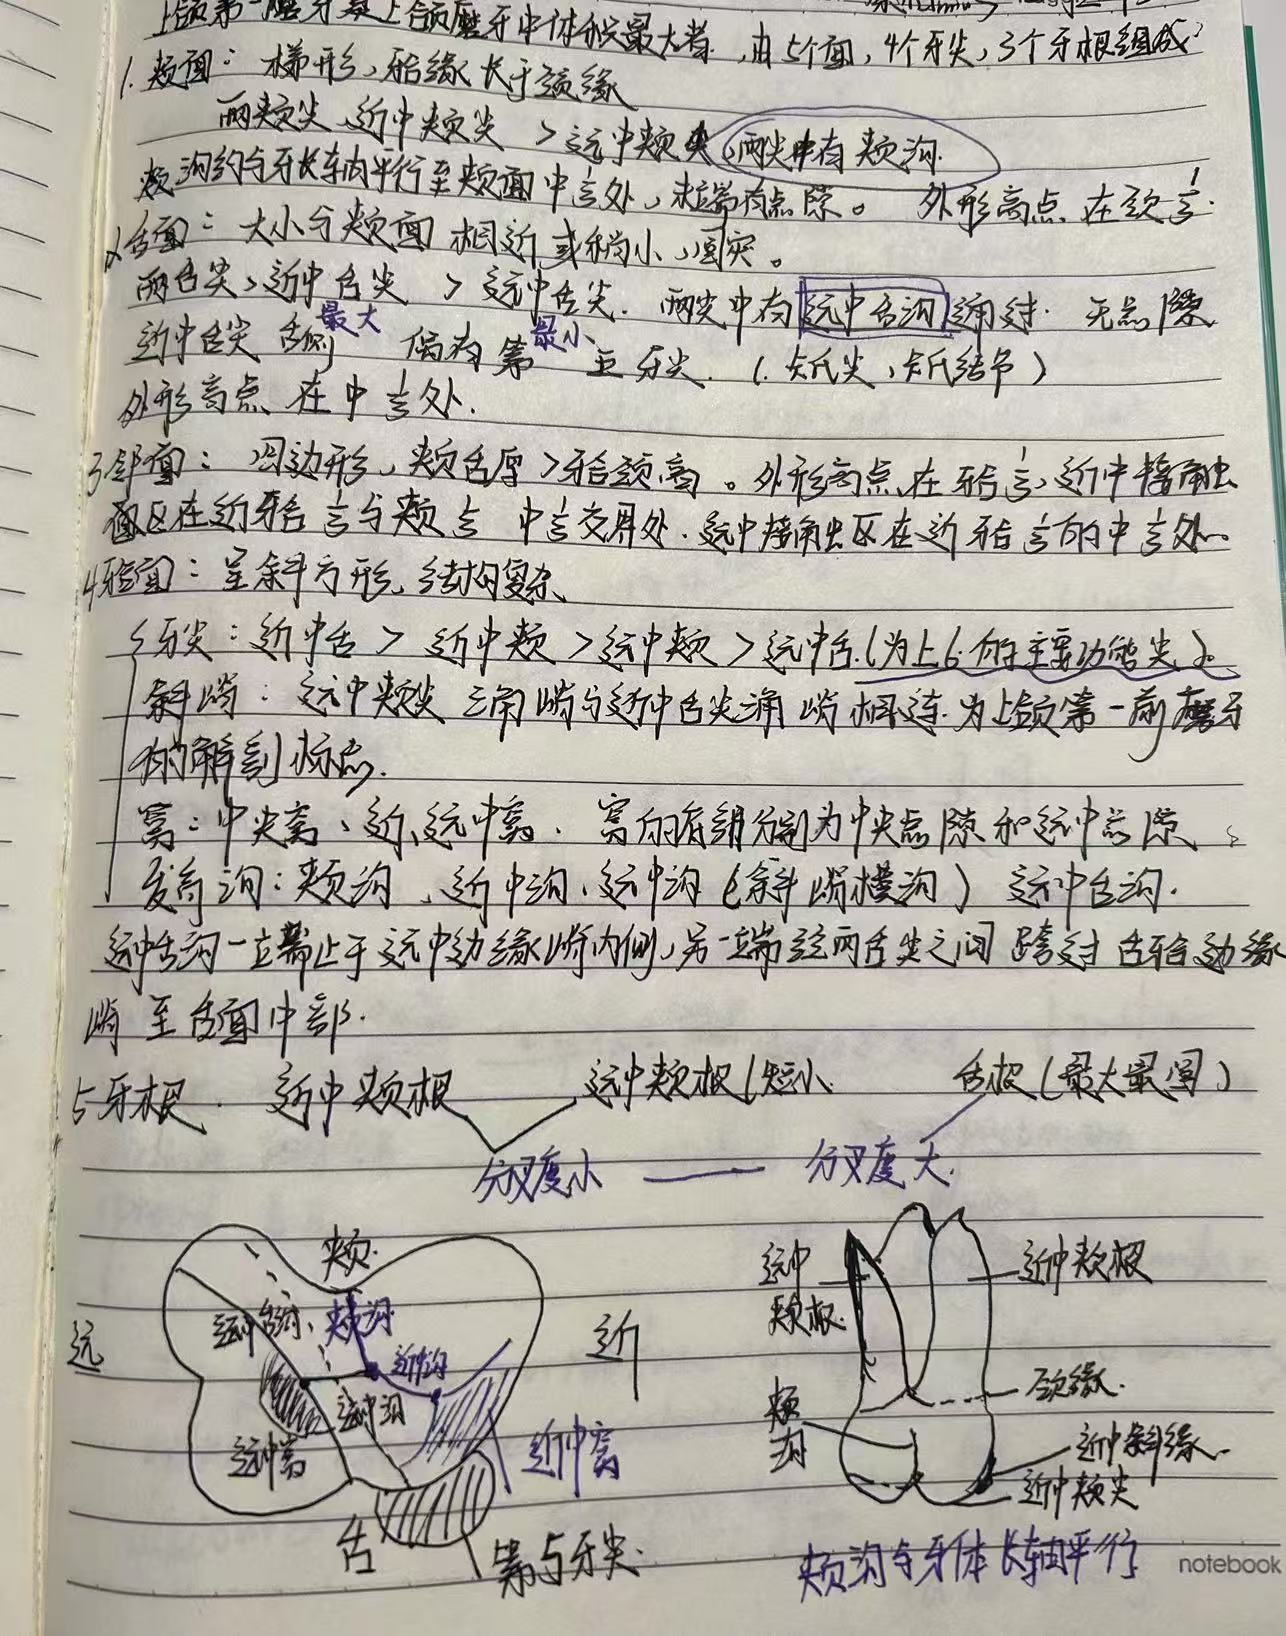 上颌第一磨牙是上颌磨牙中体积最大者，由5个面，4个牙尖，3个牙根组成
1. 颊面：梯形，𬌗缘长于颈缘
两颊尖，近中颊尖 > 远中颊尖，两尖中有颊沟.
颊沟约与牙长轴平行至颊面中1/3处，末端有点隙。 外形高点在颈1/3.
2 舌面：大小与颊面相近或稍小，圆突。
两舌尖，近中舌尖 > 远中舌尖. 两尖中有远中舌沟通过. 无点隙
最大 最小
近中舌尖舌侧 偶有第五牙尖.（卡氏尖，卡氏结节）
外形高点在中1/3处.
3邻面：四边形，颊舌厚>𬌗颈高。外形高点在𬌗1/3，近中接触
区在近𬌗1/3与颊1/3中1/3交界处. 远中接触区在近𬌗1/3的中1/3处.
4𬌗面：呈斜方形，结构复杂
牙尖：近中舌 > 近中颊 > 远中颊 > 远中舌.(为上6的主要功能尖).
斜嵴：远中颊尖三角嵴与近中舌尖三角嵴相连.为上颌第一前磨牙
的解剖标志.
窝：中央窝、近、远中窝. 窝的底部分别为中央点隙和远中点隙
发育沟：颊沟、近中沟、远中沟（斜嵴横沟）远中舌沟.
远中舌沟一端止于远中边缘嵴内侧，另一端经两舌尖之间跨过舌𬌗边缘
嵴至舌面中部.
5牙根. 近中颊根 远中颊根(短小 舌根(最大最圆)
分叉度小 —— 分叉度大.
颊.
远中舌沟、颊沟
远
近中沟
近
远中沟
远中窝
近中窝
舌
第五牙尖.
远中
颊根.
近中颊根
颈缘.
颊
沟
近中斜缘.
近中颊尖
颊沟与牙体长轴平行
notebook